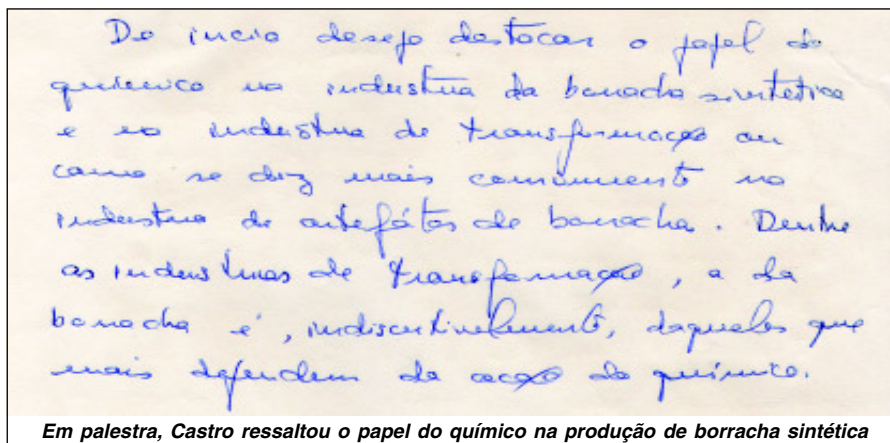 De início desejo destacar o papel do
químico na indústria da borracha sintética
e na indústria de transformação ou
como se diz mais comumente na
indústria de artefátos de borracha. Dentre
as indústrias de transformação, a da
borracha é, indiscutivelmente, daquelas que
mais dependem da acação do químico.
Em palestra, Castro ressaltou o papel do químico na produção de borracha sintética